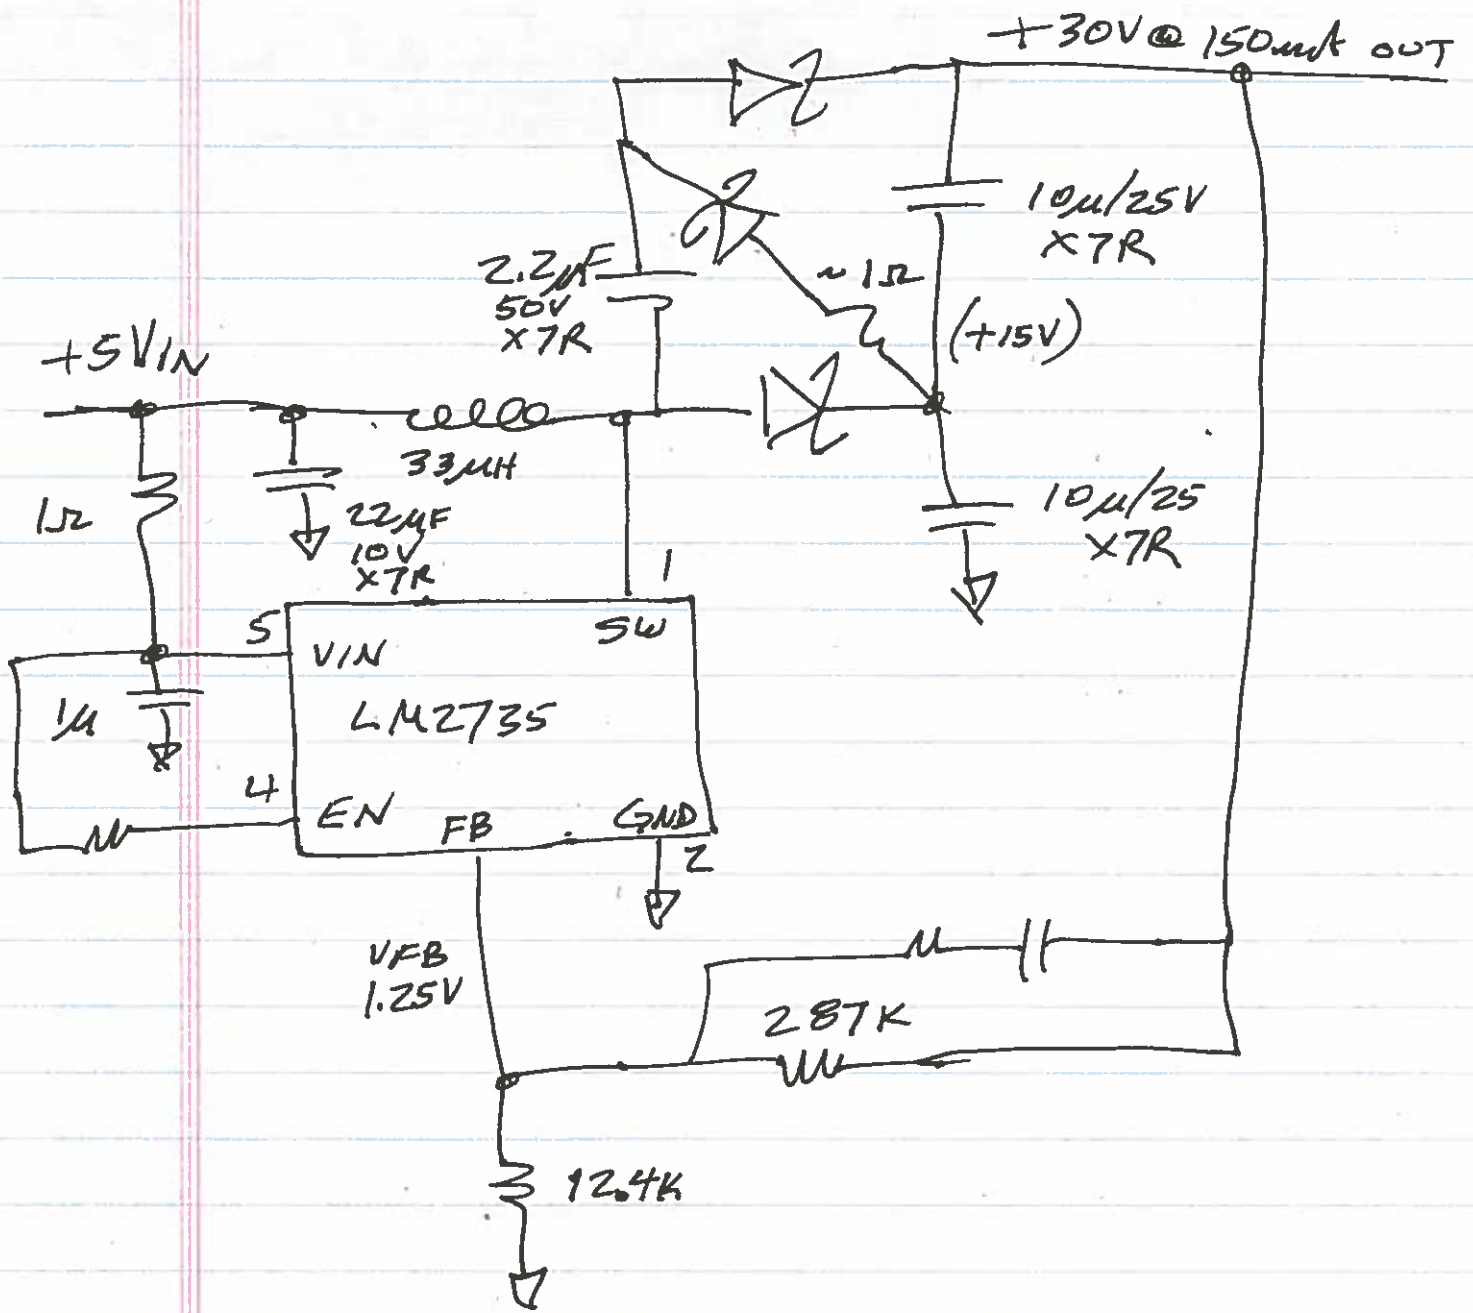 +30V@ 150mA OUT
10µ/25V
X7R
2.2µF
50V
X7R
~1Ω
(+15V)
+5VIN
33µH
1Ω
22µF
10V
X7R
10µ/25
X7R
1
5
SW
VIN
LM2735
1µ
4
EN
FB
GND
2
VFB
1.25V
287K
12.4K